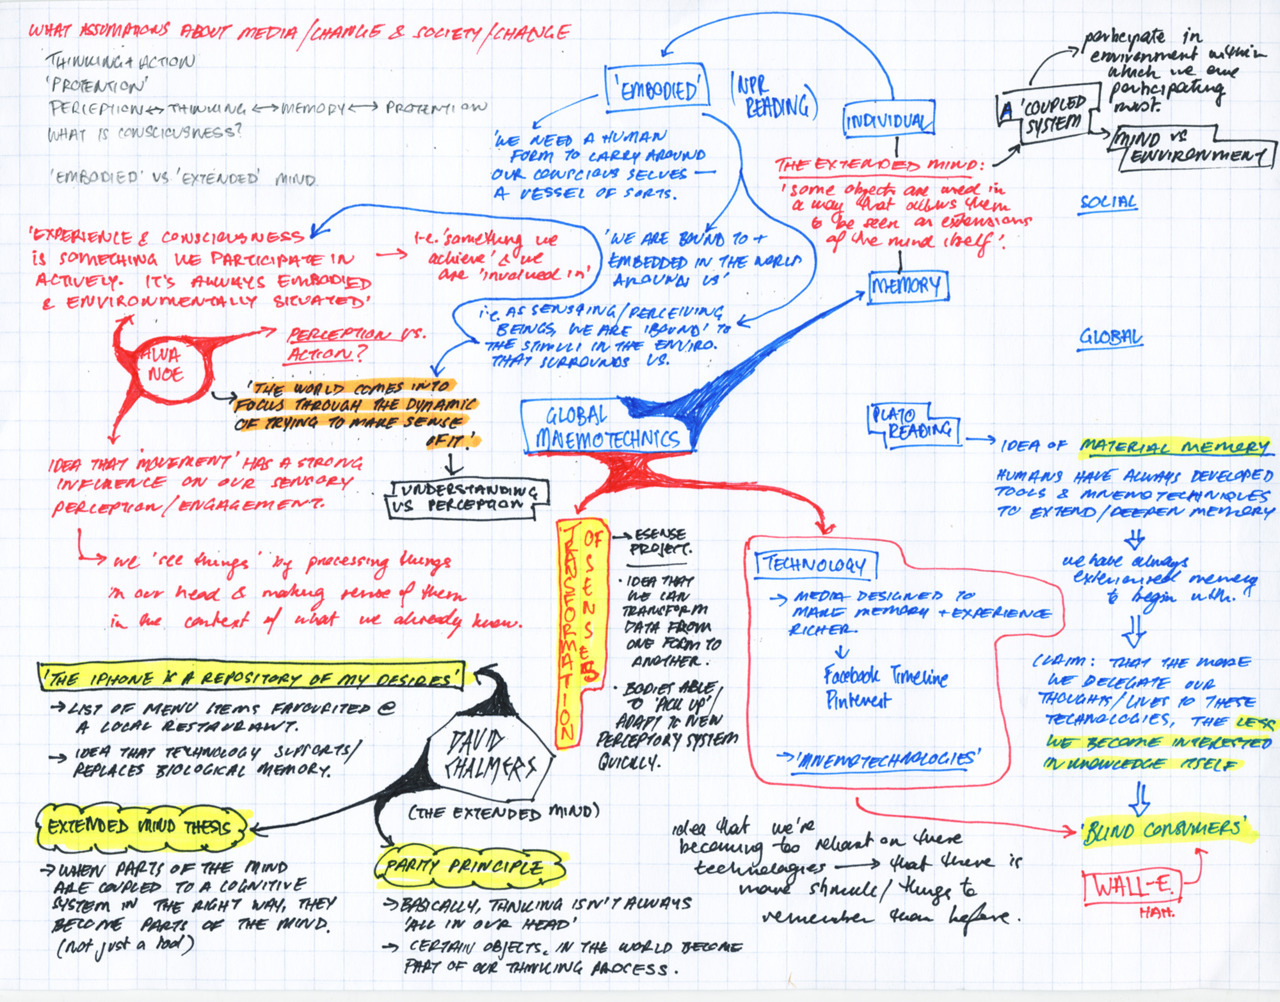 WHAT ASSUMPTIONS ABOUT MEDIA/CHANGE & SOCIETY/CHANGE
THINKING + ACTION
'PROTENTION'
PERCEPTION ↔ THINKING ↔ MEMORY ↔ PROTENTION
WHAT IS CONSCIOUSNESS?
'EMBODIED' VS 'EXTENDED' MIND
'EMBODIED'
(NPR
READING)
INDIVIDUAL
A 'COUPLED
SYSTEM
participate in
environment within
which we are
participating
most.
MIND VS
ENVIRONMENT
'WE NEED A HUMAN
FORM TO CARRY AROUND
OUR CONSCIOUS SELVES —
A VESSEL OF SORTS.
THE EXTENDED MIND:
'some objects are used in
a way that allows them
to be seen as extensions
of the mind itself'.
SOCIAL
'EXPERIENCE & CONSCIOUSNESS
IS SOMETHING WE PARTICIPATE IN
ACTIVELY. IT'S ALWAYS EMBODIED
& ENVIRONMENTALLY SITUATED'
→ i.e. 'something we
achieve' & we
are 'involved in'
'WE ARE BOUND TO +
EMBEDDED IN THE WORLD
AROUND US'
MEMORY
i.e. AS SENSING/PERCEIVING
BEINGS, WE ARE 'BOUND' TO
THE STIMULI IN THE ENVIRO.
THAT SURROUNDS US.
GLOBAL
ALVA
NOE
PERCEPTION VS.
ACTION?
'THE WORLD COMES INTO
FOCUS THROUGH THE DYNAMIC
OF TRYING TO MAKE SENSE
OF IT.'
UNDERSTANDING
VS PERCEPTION
GLOBAL
MNEMOTECHNICS
IDEA THAT 'MOVEMENT' HAS A STRONG
INFLUENCE ON OUR SENSORY
PERCEPTION/ENGAGEMENT.
→ we 'see things' by processing things
in our head & making sense of them
in the context of what we already know.
PLATO
READING
→ IDEA OF MATERIAL MEMORY
HUMANS HAVE ALWAYS DEVELOPED
TOOLS & MNEMOTECHNIQUES
TO EXTEND/DEEPEN MEMORY
we have always
exteriorised memory
to begin with.
CLAIM: THAT THE MORE
WE DELEGATE OUR
THOUGHTS/LIVES TO THESE
TECHNOLOGIES, THE LESS
WE BECOME INTERESTED
IN KNOWLEDGE ITSELF
'BLIND CONSUMERS'
WALL-E.
HAH.
TRANSFORMATION
OF SENSES
→ ESENSE
PROJECT.
· IDEA THAT
WE CAN
TRANSFORM
DATA FROM
ONE FORM TO
ANOTHER.
· BODIES ABLE
TO 'PICK UP'/
ADAPT TO NEW
PERCEPTORY SYSTEM
QUICKLY.
TECHNOLOGY
→ MEDIA DESIGNED TO
MAKE MEMORY + EXPERIENCE
RICHER.
↓
Facebook Timeline
Pinterest
→ 'MNEMOTECHNOLOGIES'
idea that we're
becoming too reliant on these
technologies → that there is
more shmuck/things to
remember than before.
'THE IPHONE IS A REPOSITORY OF MY DESIRES'
→ LIST OF MENU ITEMS FAVOURITED @
A LOCAL RESTAURANT.
→ IDEA THAT TECHNOLOGY SUPPORTS/
REPLACES BIOLOGICAL MEMORY.
DAVID
CHALMERS
(THE EXTENDED MIND)
EXTENDED MIND THESIS
→ WHEN PARTS OF THE MIND
ARE COUPLED TO A COGNITIVE
SYSTEM IN THE RIGHT WAY, THEY
BECOME PARTS OF THE MIND.
(not just a tool)
PARITY PRINCIPLE
→ BASICALLY, THINKING ISN'T ALWAYS
'ALL IN OUR HEAD'
→ CERTAIN OBJECTS IN THE WORLD BECOME
PART OF OUR THINKING PROCESS.